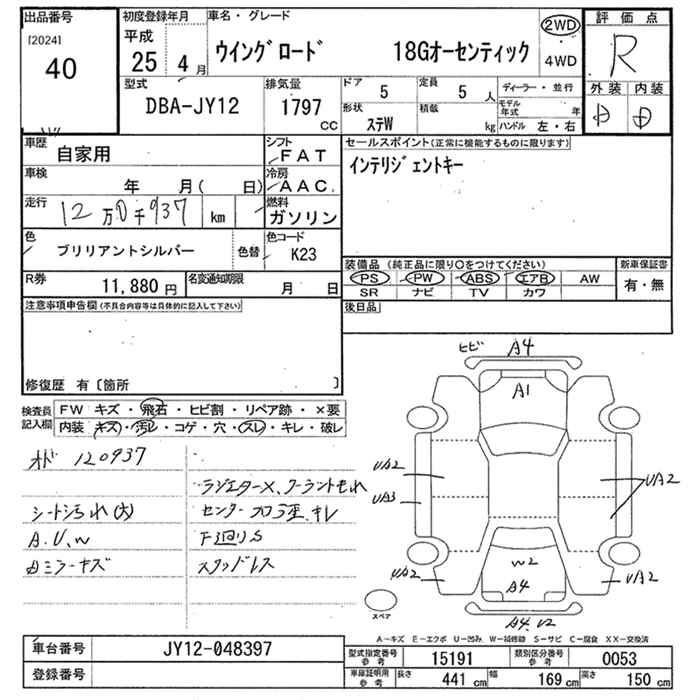 出品番号
[2024]
40
初度登録年月
平成
25 4月
車名・グレード
ウイングロード 18Gオーセンティック
2WD
4WD
評価点
R
外装 内装
型式
DBA-JY12
排気量
1797
CC
ドア
5
定員
5 人
形状
ステW
積載
kg
ディーラー・並行
モデル年式 年
ハンドル 左・右
車歴
自家用
シフト
FAT
車検
年 月( 日)
冷房
AAC
走行
12万0千937 km
燃料
ガソリン
色
ブリリアントシルバー
色替
色コード
K23
R券
11,880 円
名変通知期限
月 日
セールスポイント(正常に機能するものに限ります)
インテリジェントキー
装備品 (純正品に限り○をつけてください)
PS PW ABS エアB AW
SR ナビ TV カワ
新車保証書
有・無
後日品
注意事項申告欄(不具合内容等は具体的に記入して下さい)
修復歴 有〔箇所 〕
検査員記入欄
FW キズ・飛石・ヒビ割・リペア跡・×要
内装 キズ・汚レ・コゲ・穴・スレ・キレ・破レ
120937
シート汚れ(大)
A.U.W
スタッドレス
ヒビ A4
A1
UA2
UA3
UA2
W2
A4
UA2
UA2
A4 U2
スペア
A-キズ E-エクボ U-凹み W-補修跡 S-サビ C-腐食 XX-交換済
車台番号
JY12-048397
登録番号
型式指定番号 参考
15191
類別区分番号 参考
0053
車庫証明用 参考
長さ 441 cm
幅 169 cm
高さ 150 cm